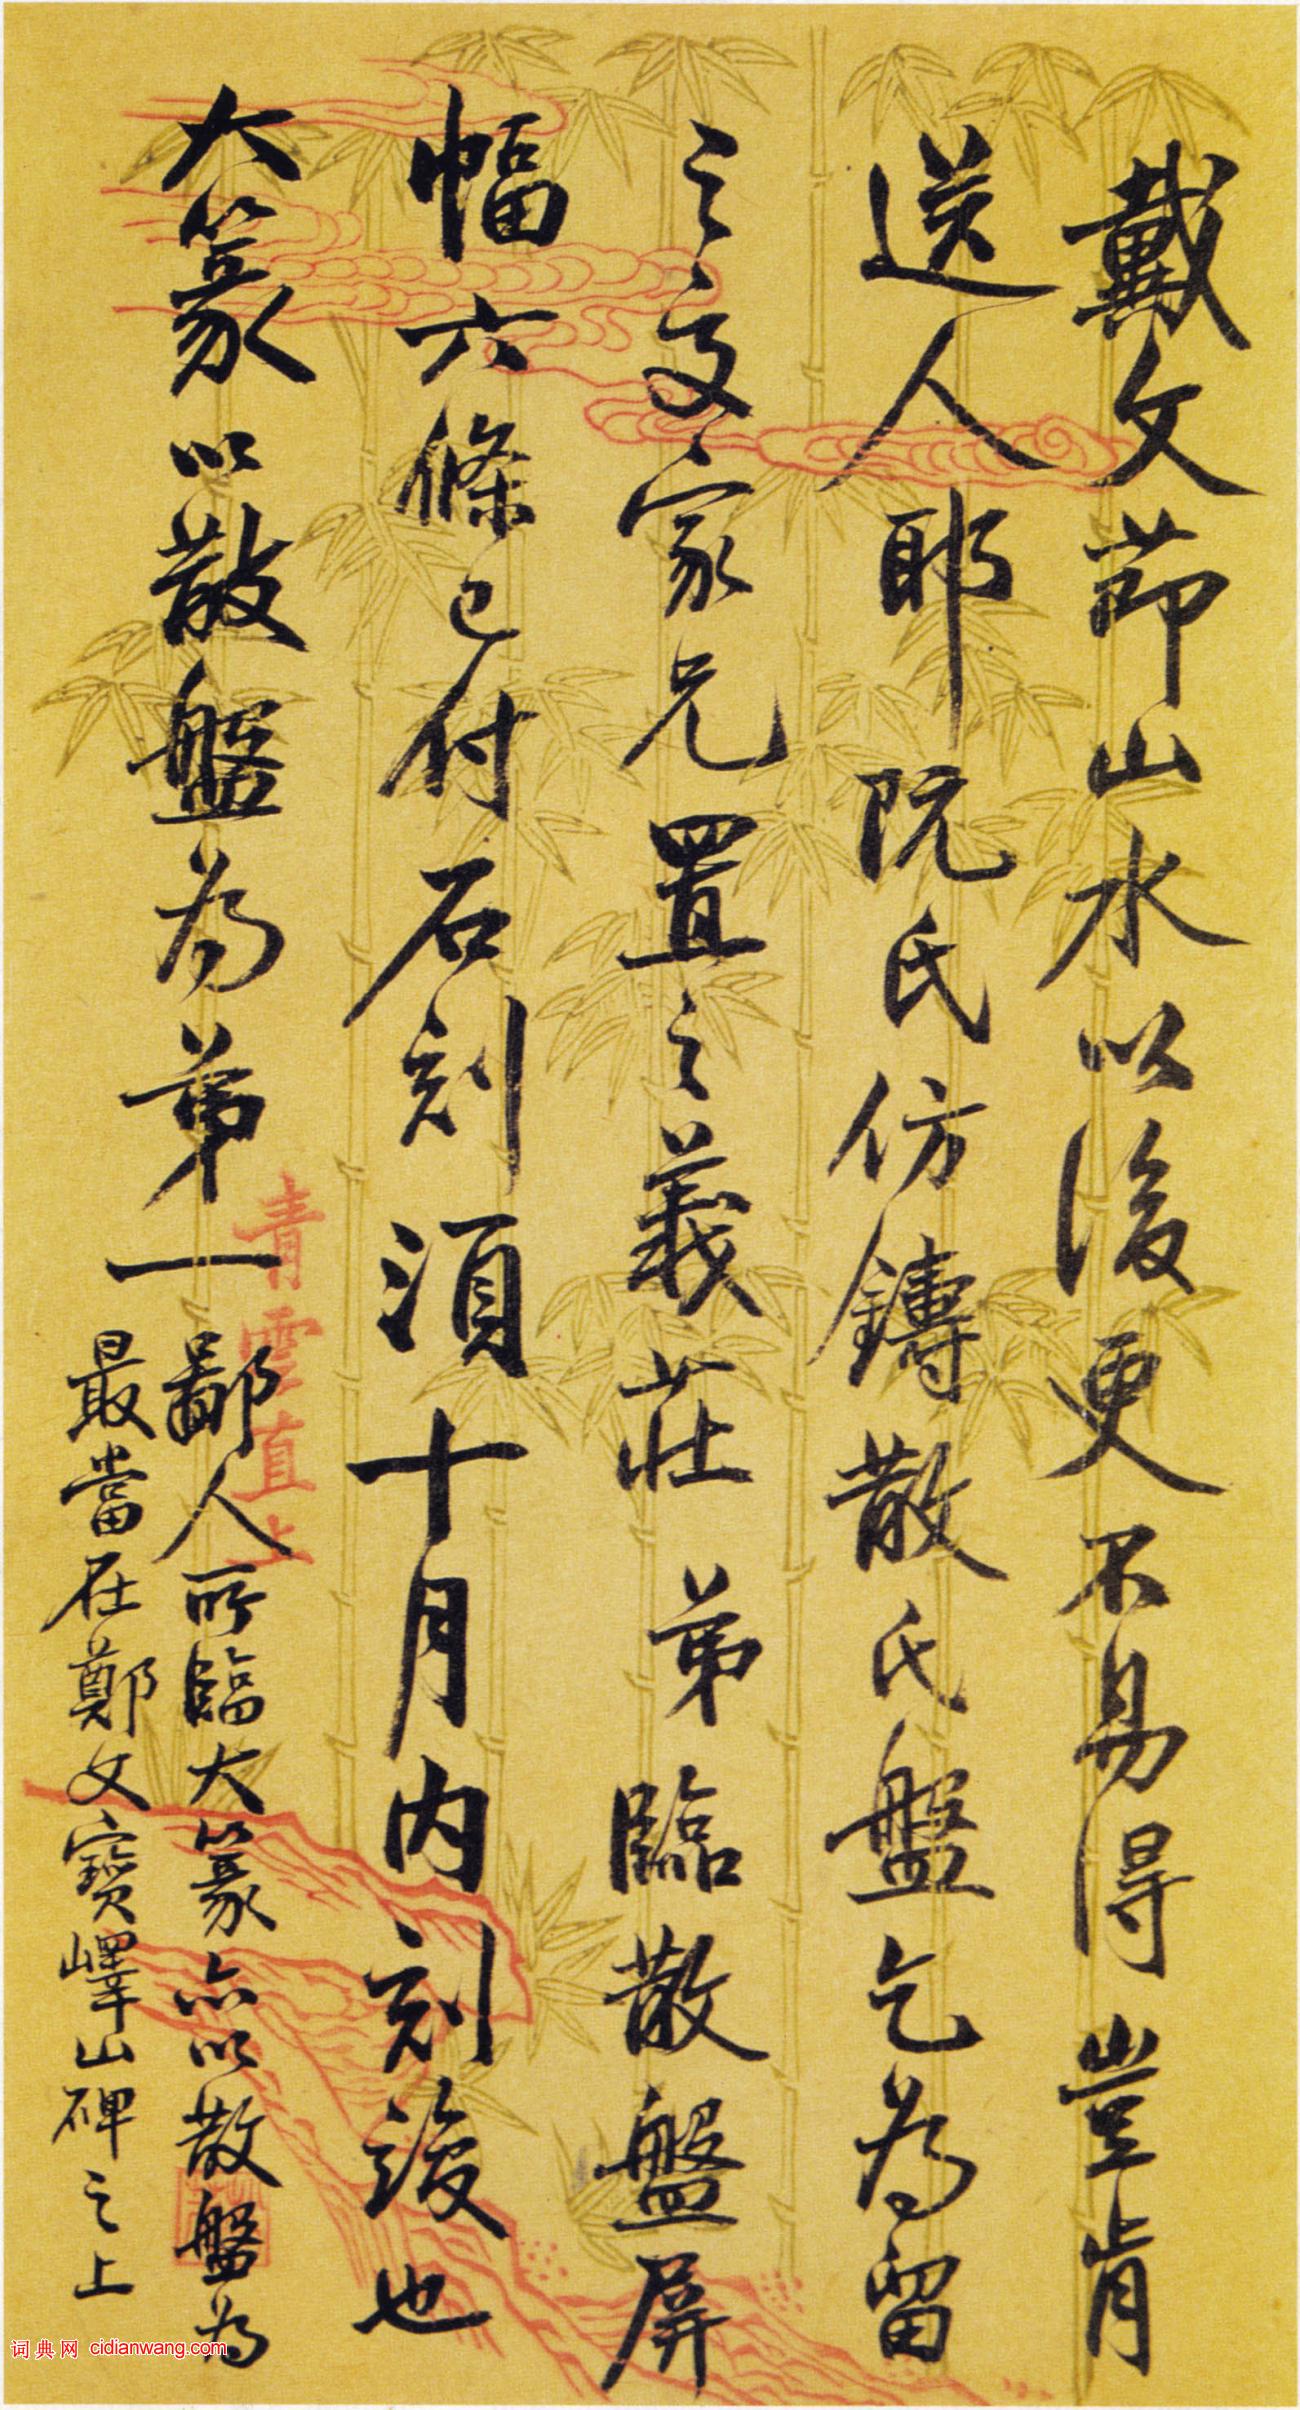 戴文節山水以後更不易得豈肯
送人耶阮氏仿鑄散氏盤乞為留
之文家兄置之義莊弟臨散盤屏
幅六條已付石刻須十月內刻竣也
大篆以散盤為弟一鄙人所臨大篆亦以散盤為
最當在鄭文寶嶧山碑之上
青雲直上
词典网 cidianwang.com